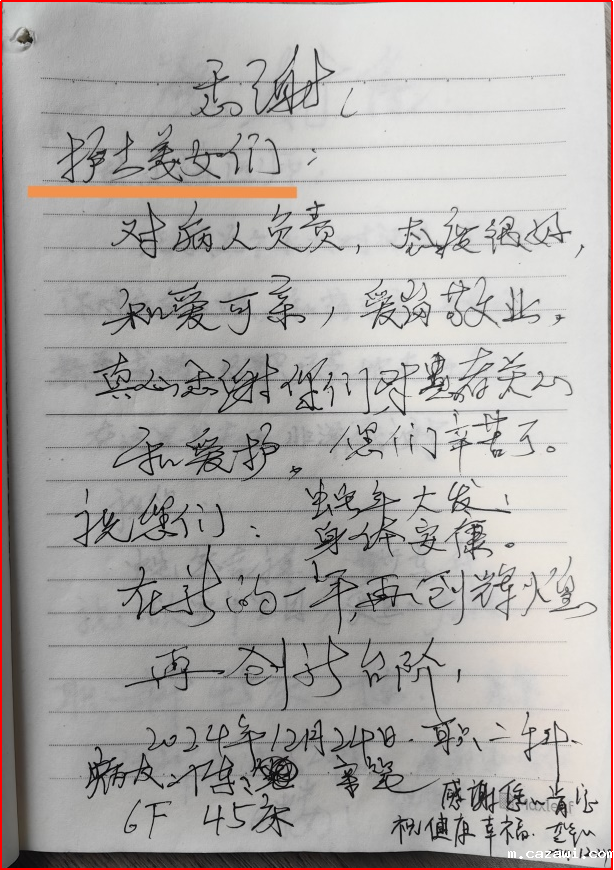 感谢!
护士美女们:
对病人负责，态度很好，
和爱可亲，爱岗敬业，
真心感谢你们对患者关心
和爱护。您们辛苦了。
祝您们: 蛇年大发!
身体安康。
在新的一年,再创辉煌
再创新台阶!
2024年12月24日. 职二科.
病友: 陈 亲笔
6F 45床
感谢您的肯定
祝健康幸福.
m.cazawi.com